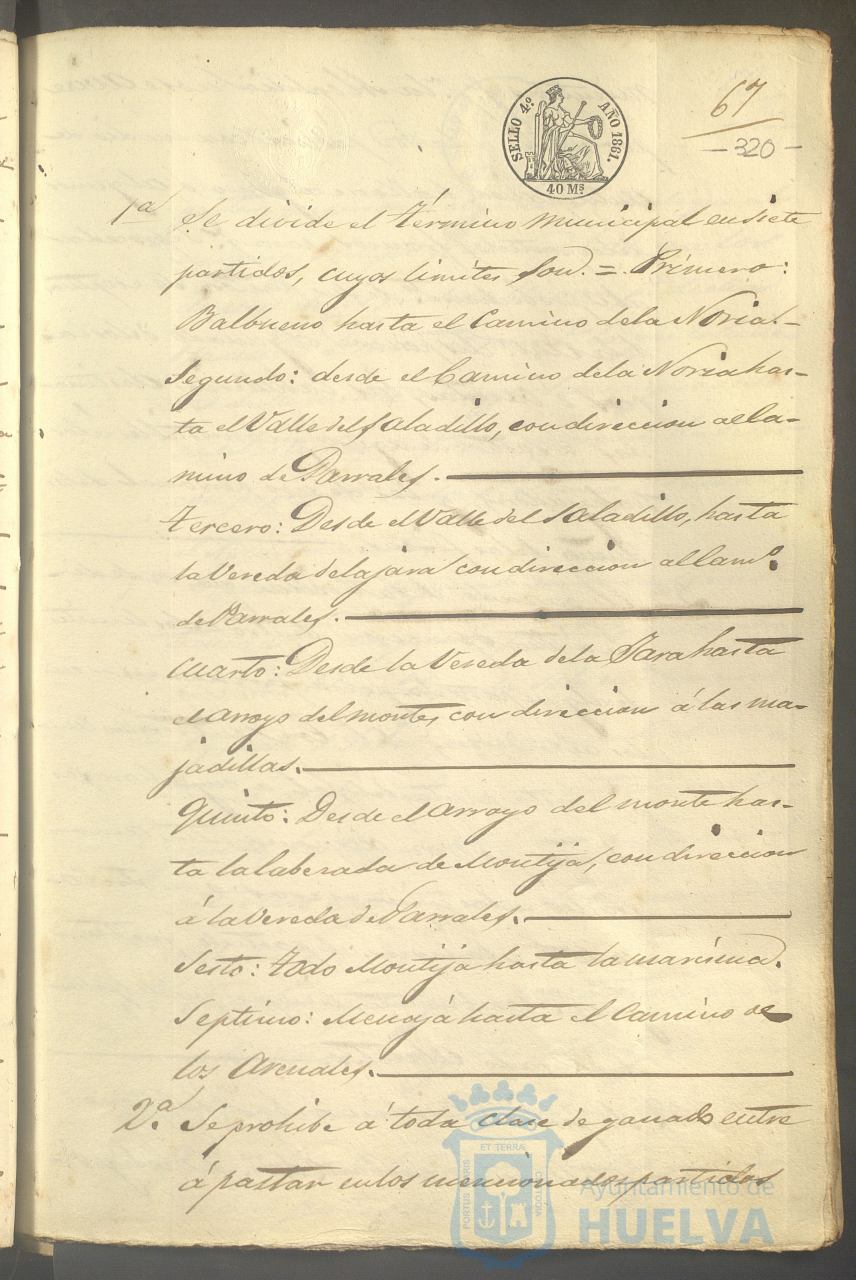 SELLO 4.º AÑO 1861.
40 Ms.
67
- 320 -
1ª Se divide el término municipal en siete
partidos, cuyos limites son. = Primero:
Balbueno hasta el Camino de la Noria.-
Segundo: desde el Camino de la Noria has-
ta el Valle del Saladillo, con direccion al Ca-
mino de Parrales.
Tercero: Desde el Valle del Saladillo, hasta
la Vereda de la jara con direccion al Camº.
de Parrales.
Cuarto: Desde la Vereda de la Jara hasta
el arroyo del monte, con direccion á las ma-
jadillas.
Quinto: Desde el arroyo del monte has-
ta la laberada de Montija, con direccion
á la Vereda de Parrales.
Sesto: Todo Montija hasta la marisma.
Septimo: Menajá hasta el Camino de
los Arenales.
2ª. Se prohibe á toda clase de ganado entre
á pastar en los mencionados partidos
ET TERRA
PORTUS MARIS
CUSTODIA
Ayuntamiento de
HUELVA